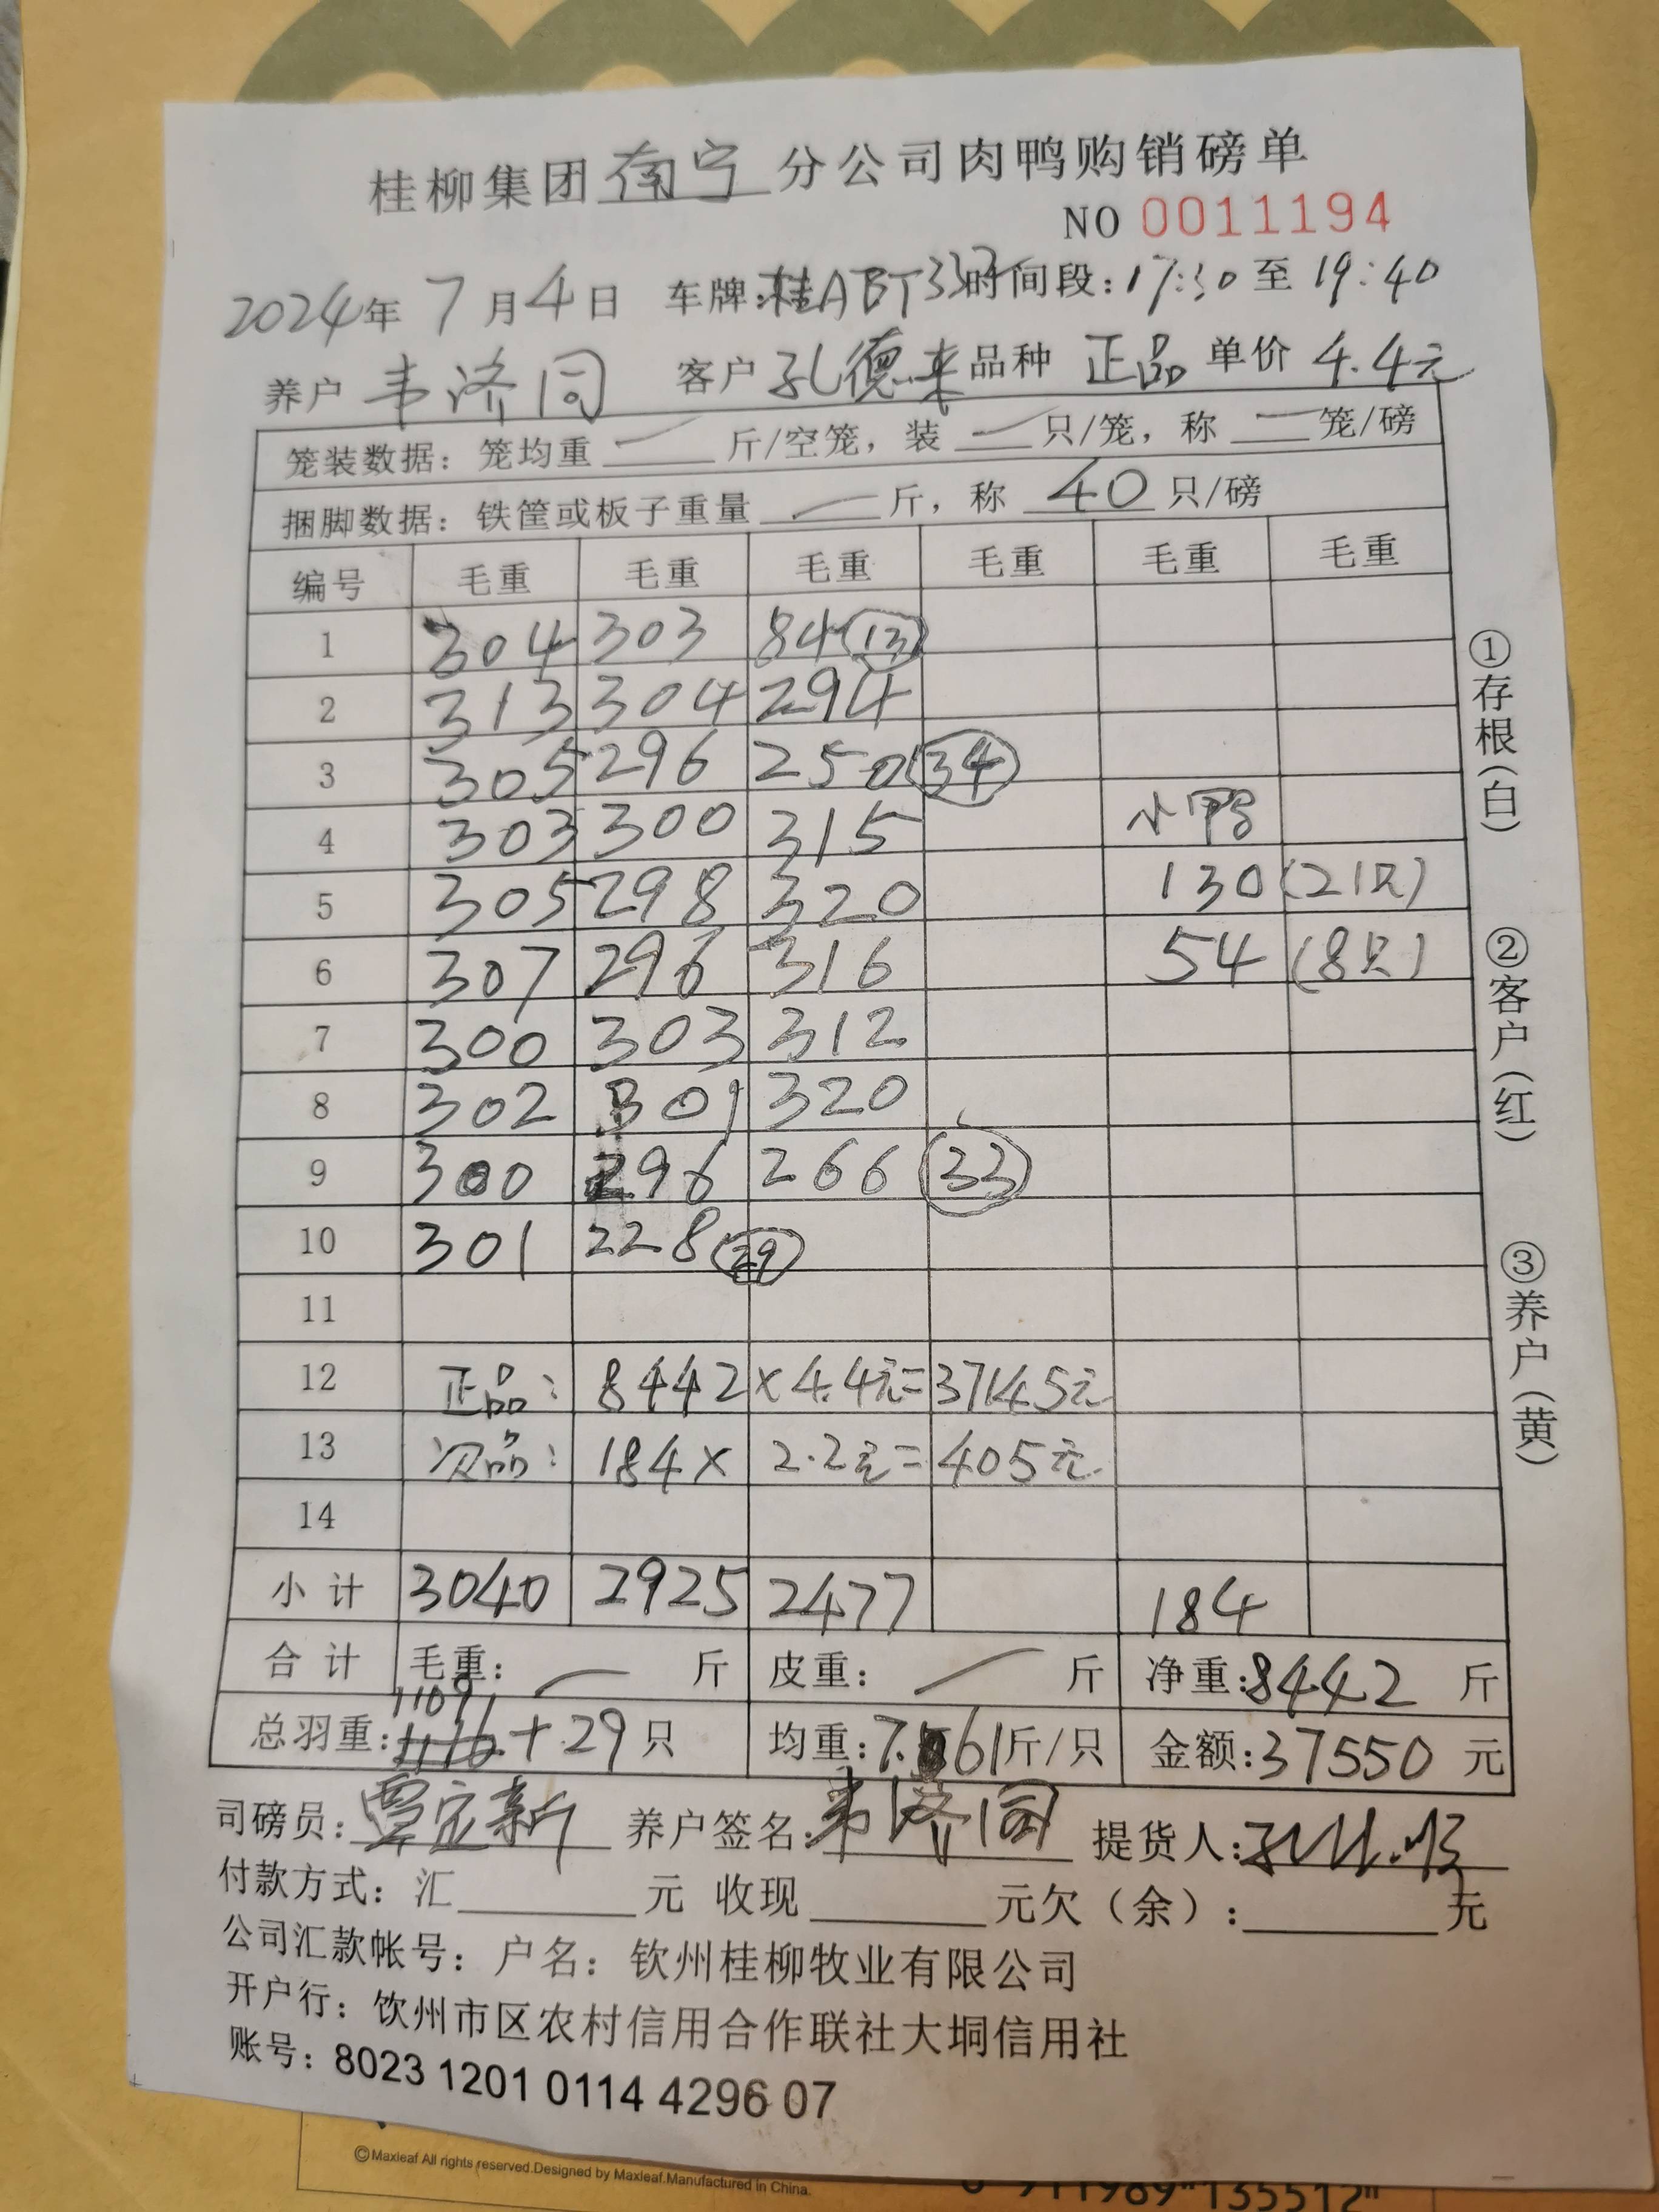 桂柳集团南宁分公司肉鸭购销磅单
NO 0011194
2024年 7月4日 车牌:桂ABT33 时间段:17:30至19:40
养户 韦济同 客户 孔德来 品种 正品 单价 4.4元
笼装数据: 笼均重 — 斤/空笼, 装 — 只/笼, 称 — 笼/磅
捆脚数据: 铁筐或板子重量 — 斤, 称 40 只/磅
编号 毛重 毛重 毛重 毛重 毛重 毛重
1 304 303 84 (13)
2 313 304 294
3 305 296 250 (34)
4 303 300 315 小鸭
5 305 298 320 130 (21只)
6 307 296 316 54 (8只)
7 300 303 312
8 302 301 320
9 300 296 266 (33)
10 301 228 (29)
11
12 正品: 8442 ×4.4元= 37145元
13 次品: 184× 2.2元= 405元
14
小计 3040 2925 2477 184
合计 毛重: — 斤 皮重: — 斤 净重:8442 斤
总羽重: +29只 均重:7.61斤/只 金额:37550 元
司磅员:覃定新 养户签名:韦济同 提货人:
付款方式: 汇 元 收现 元欠(余): 元
公司汇款帐号: 户名: 钦州桂柳牧业有限公司
开户行: 饮州市区农村信用合作联社大垌信用社
账号: 8023 1201 0114 4296 07
①存根(白)
②客户(红)
③养户(黄)
©Maxleaf All rights reserved.Designed by Maxleaf.Manufactured in China.